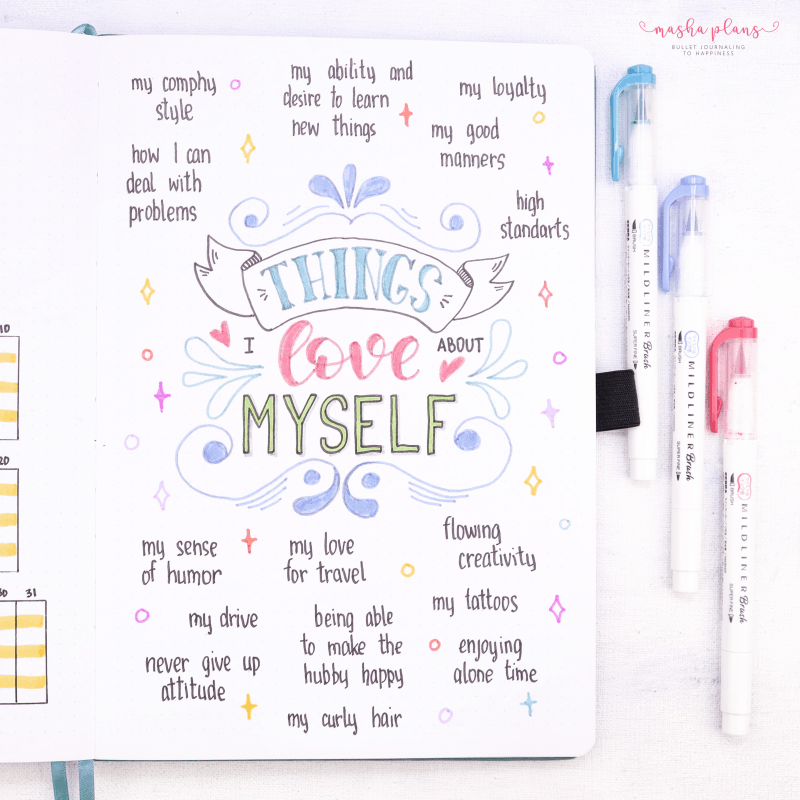 masha plans
BULLET JOURNALING
TO HAPPINESS
my comphy
style
my ability and
desire to learn
new things
my loyalty
my good
manners
how I can
deal with
problems
high
standarts
THINGS
I love ABOUT
MYSELF
my sense
of humor
my love
for travel
flowing
creativity
my drive
being able
to make the
hubby happy
my tattoos
enjoying
alone time
never give up
attitude
my curly hair
10
20
30 31
MILDLINER Brush
BRUSH
SUPER FINE
MILDLINER Brush
BRUSH
SUPER FINE
MILDLINER Brush
BRUSH
SUPER FINE